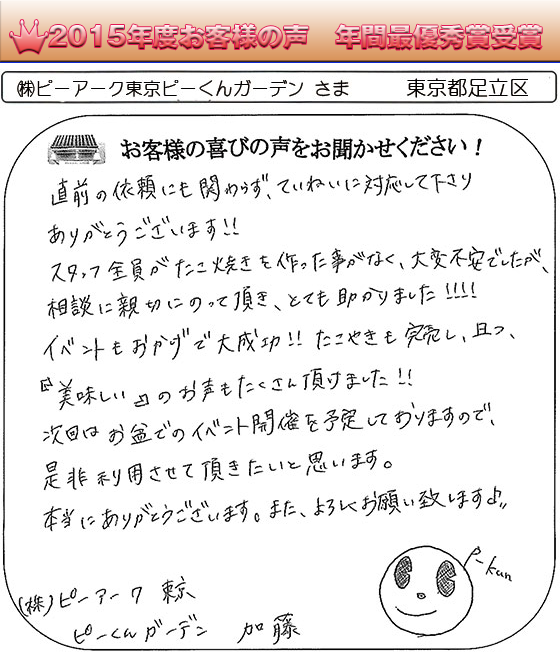 2015年度お客様の声 年間最優秀賞受賞
㈱ピーアーク東京ピーくんガーデン さま 東京都足立区
お客様の喜びの声をお聞かせください！
直前の依頼にも関わらず、ていねいに対応して下さり
ありがとうございます!!
スタッフ全員がたこ焼きを作った事がなく、大変不安でしたが、
相談に親切にのって頂き、とても助かりました!!!!
イベントもおかげで大成功!! たこやきも完売し、且つ、
『美味しい』のお声もたくさん頂けました!!
次回はお盆でのイベント開催を予定しておりますので、
是非利用させて頂きたいと思います。
本当にありがとうございます。また、よろしくお願い致します♪!!
P-kun
(株)ピーアーク東京
ピーくんガーデン 加藤